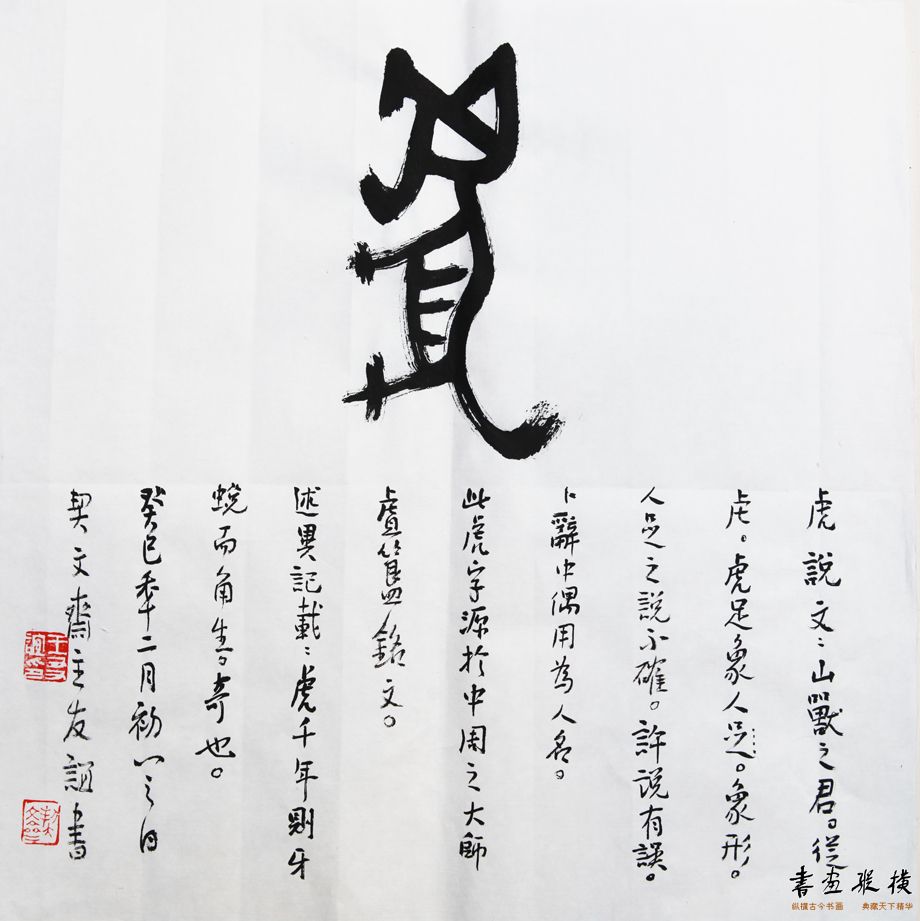 虎
虎說文:山獸之君。從
虍。虎足象人足。象形。
人足之說不確。許說有誤。
卜辭中偶用為人名。
此虎字源於中周之大師
虘簋銘文。
述異記載:虎千年則牙
蛻而角生。奇也。
癸巳年二月初八之日
契文齋主友誼書
書畫縱橫
纵横古今书画 典藏天下精华